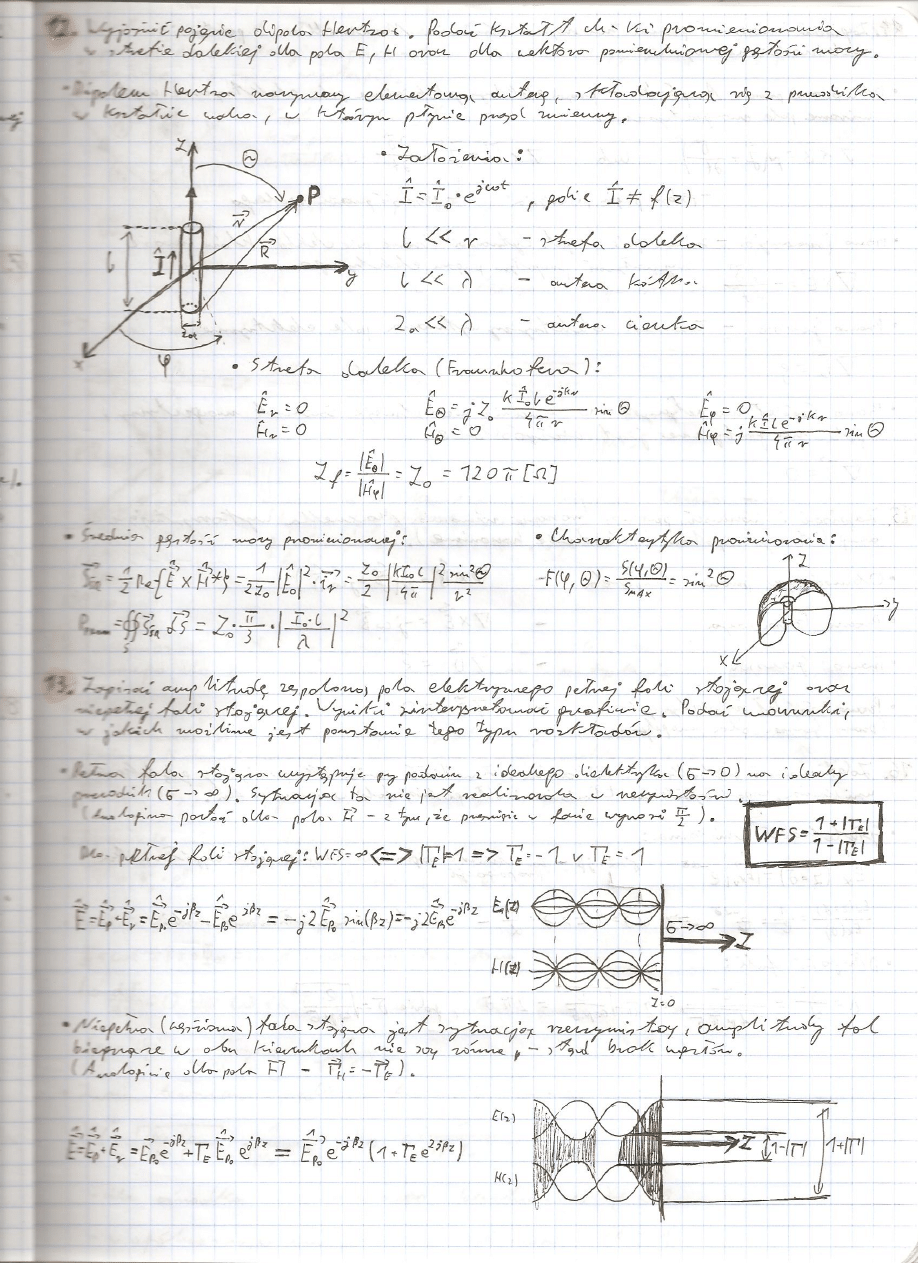 12. Wyjaśnić pojęcie dipola Hertza. Podać kształt ch-ki promieniowania
w strefie dalekiej dla pola E, H oraz dla wektora powierzchniowej gęstości mocy.
• Dipolem Hertza nazywamy elementarną antenę, składającą się z przewodnika
w kształcie walca, w którym płynie prąd zmienny.
z Θ P
• Założenia:
Î = Î₀·e^{jωt}, gdzie Î ≠ f(z)
l << r – strefa daleka
l << λ – antena krótka
2a << λ – antena cienka
l Î r⃗ R⃗ y
x 2a φ
• Strefa daleka (Fraunhofera):
Ê_r = 0 Ê_Θ = j Z₀ (k Î₀ l e^{-jkr})/(4πr) sin Θ Ê_φ = 0
Ĥ_r = 0 Ĥ_Θ = 0 Ĥ_φ = j (k Î l e^{-jkr})/(4πr) sin Θ
Z_f = |Ê_Θ|/|Ĥ_φ| = Z₀ = 120π [Ω]
• Średnia gęstość mocy promieniowanej: • Charakterystyka promieniowania:
S⃗_śr = 1/2 Re{Ê⃗ × Ĥ⃗*} = 1/(2Z₀) |Ê_Θ|² · i⃗_r = Z₀/2 |kI₀l/4π|² sin²Θ/r² F(φ, Θ) = S(φ,Θ)/S_MAX = sin²Θ
= ∯_S S⃗_śr dS⃗ = Z₀ · π/3 · |I₀·l/λ|²
z y x
13. Zapisać amplitudę zespoloną pola elektrycznego pełnej fali stojącej oraz
niepełnej fali stojącej. Wyniki zinterpretować graficznie. Podać warunki,
w jakich możliwe jest powstanie tego typu rozkładów.
• Pełna fala stojąca występuje przy padaniu z idealnego dielektryka (σ→0) na idealny
przewodnik (σ→∞). Sytuacja ta nie jest realizowalna w rzeczywistości.
(Analogiczna postać dla pola H – z tym, że przesunięcie w fazie wynosi π/2).
WFS = (1+|Γ_E|)/(1-|Γ_E|)
Dla pełnej fali stojącej: WFS = ∞ <=> |Γ_E| = 1 => Γ_E = -1 ∨ Γ_E = 1
Ê⃗ = Ê⃗_p + Ê⃗_r = Ê⃗_p₀ e^{-jβz} - Ê⃗_p₀ e^{jβz} = -j2Ê⃗_p₀ sin(βz) = -j2Ê⃗_p₀ e^{-jβz}
E(z) σ→∞ z
H(z)
z=0
• Niepełna (częściowa) fala stojąca jest sytuacją rzeczywistą, amplitudy fal
biegnące w obu kierunkach nie są równe, – stąd brak węzłów.
(Analogicznie dla pola H – Γ⃗_H = -Γ⃗_E).
Ê⃗ = Ê⃗_p + Ê⃗_r = Ê⃗_p₀ e^{-jβz} + Γ_E Ê⃗_p₀ e^{jβz} = Ê⃗_p₀ e^{-jβz} (1 + Γ_E e^{2jβz})
E(z) z 1-|Γ| 1+|Γ|
H(z)